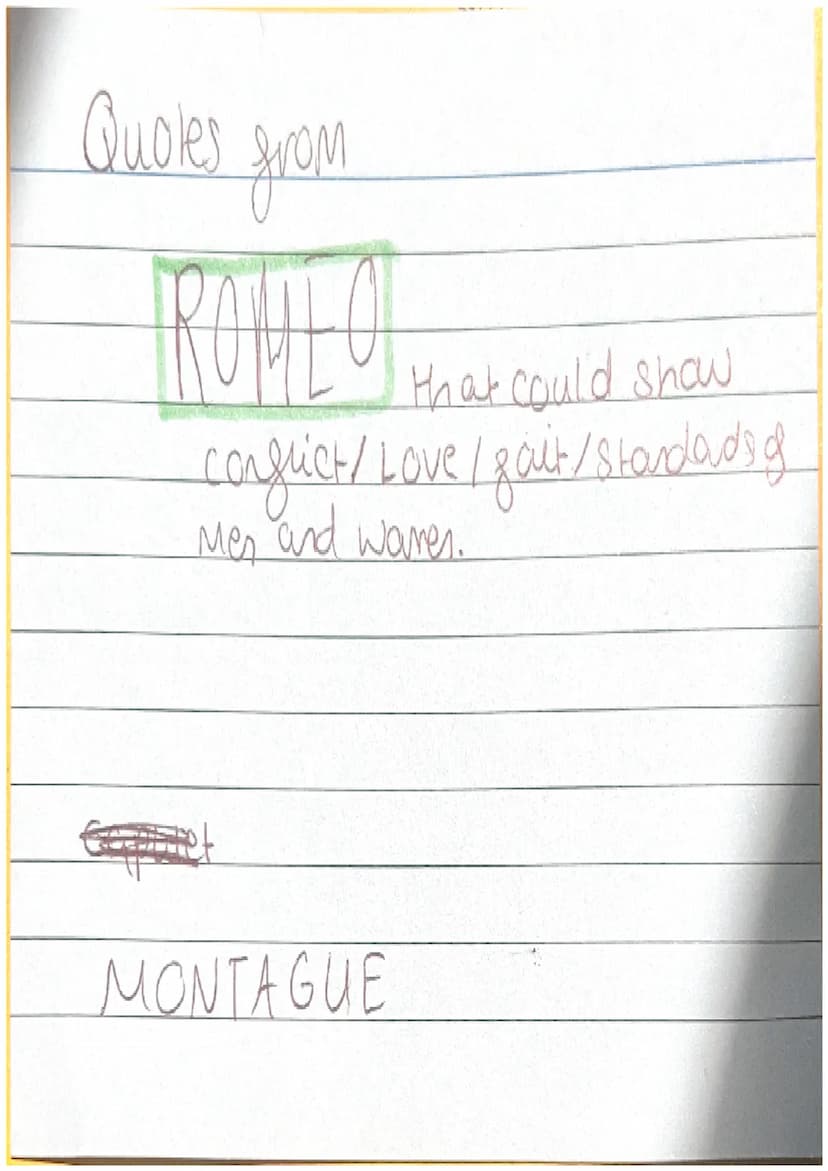 Quotes from
ROMEO
that could show
conflict/Love/fait/standads of
Men and women.
MONTAGUE